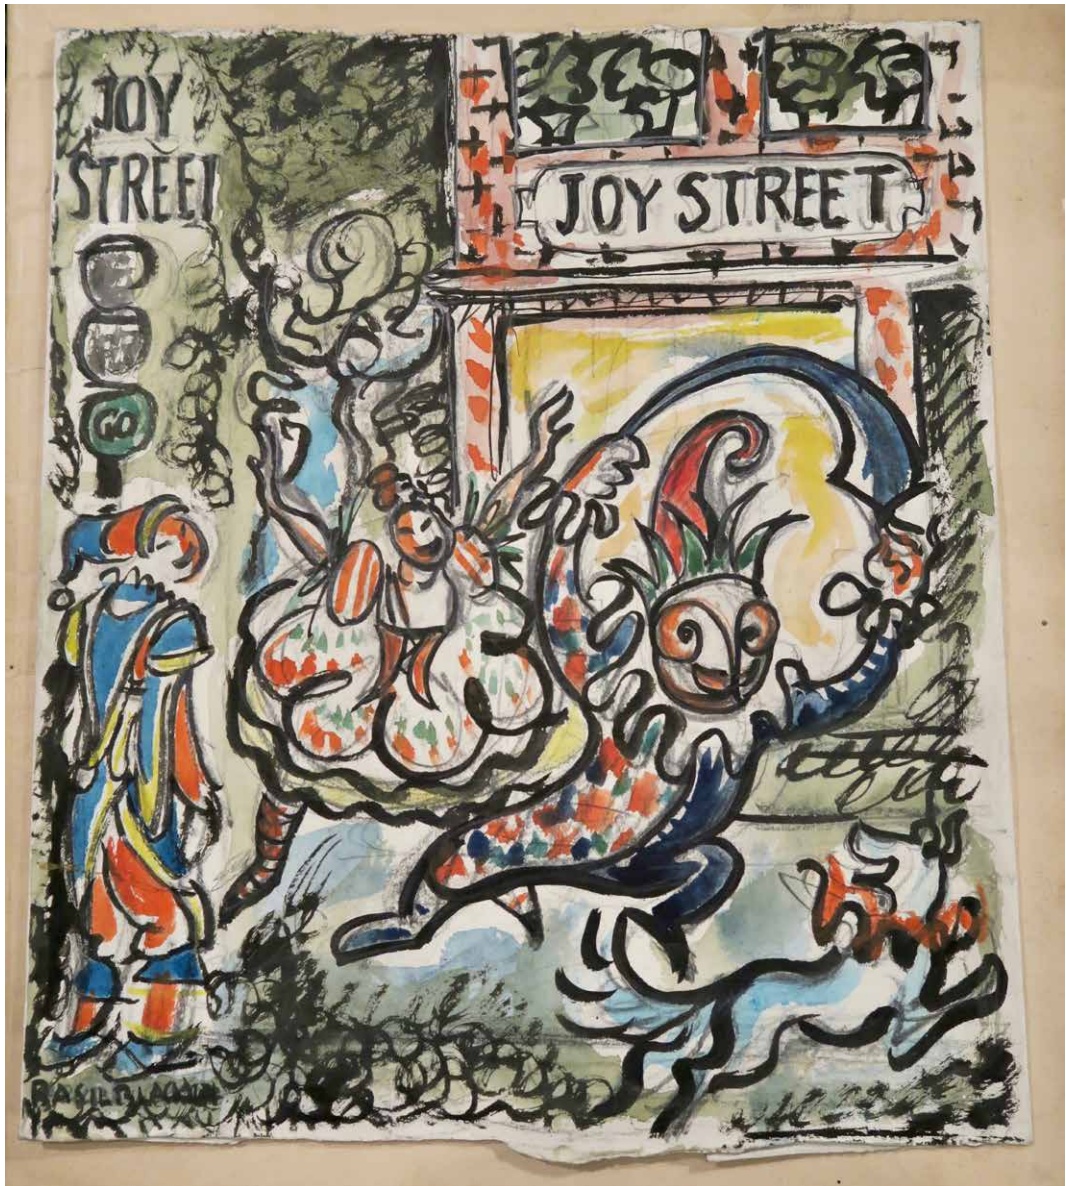 JOY
STREET
JOY STREET
GO
BASIL BLACKWELL